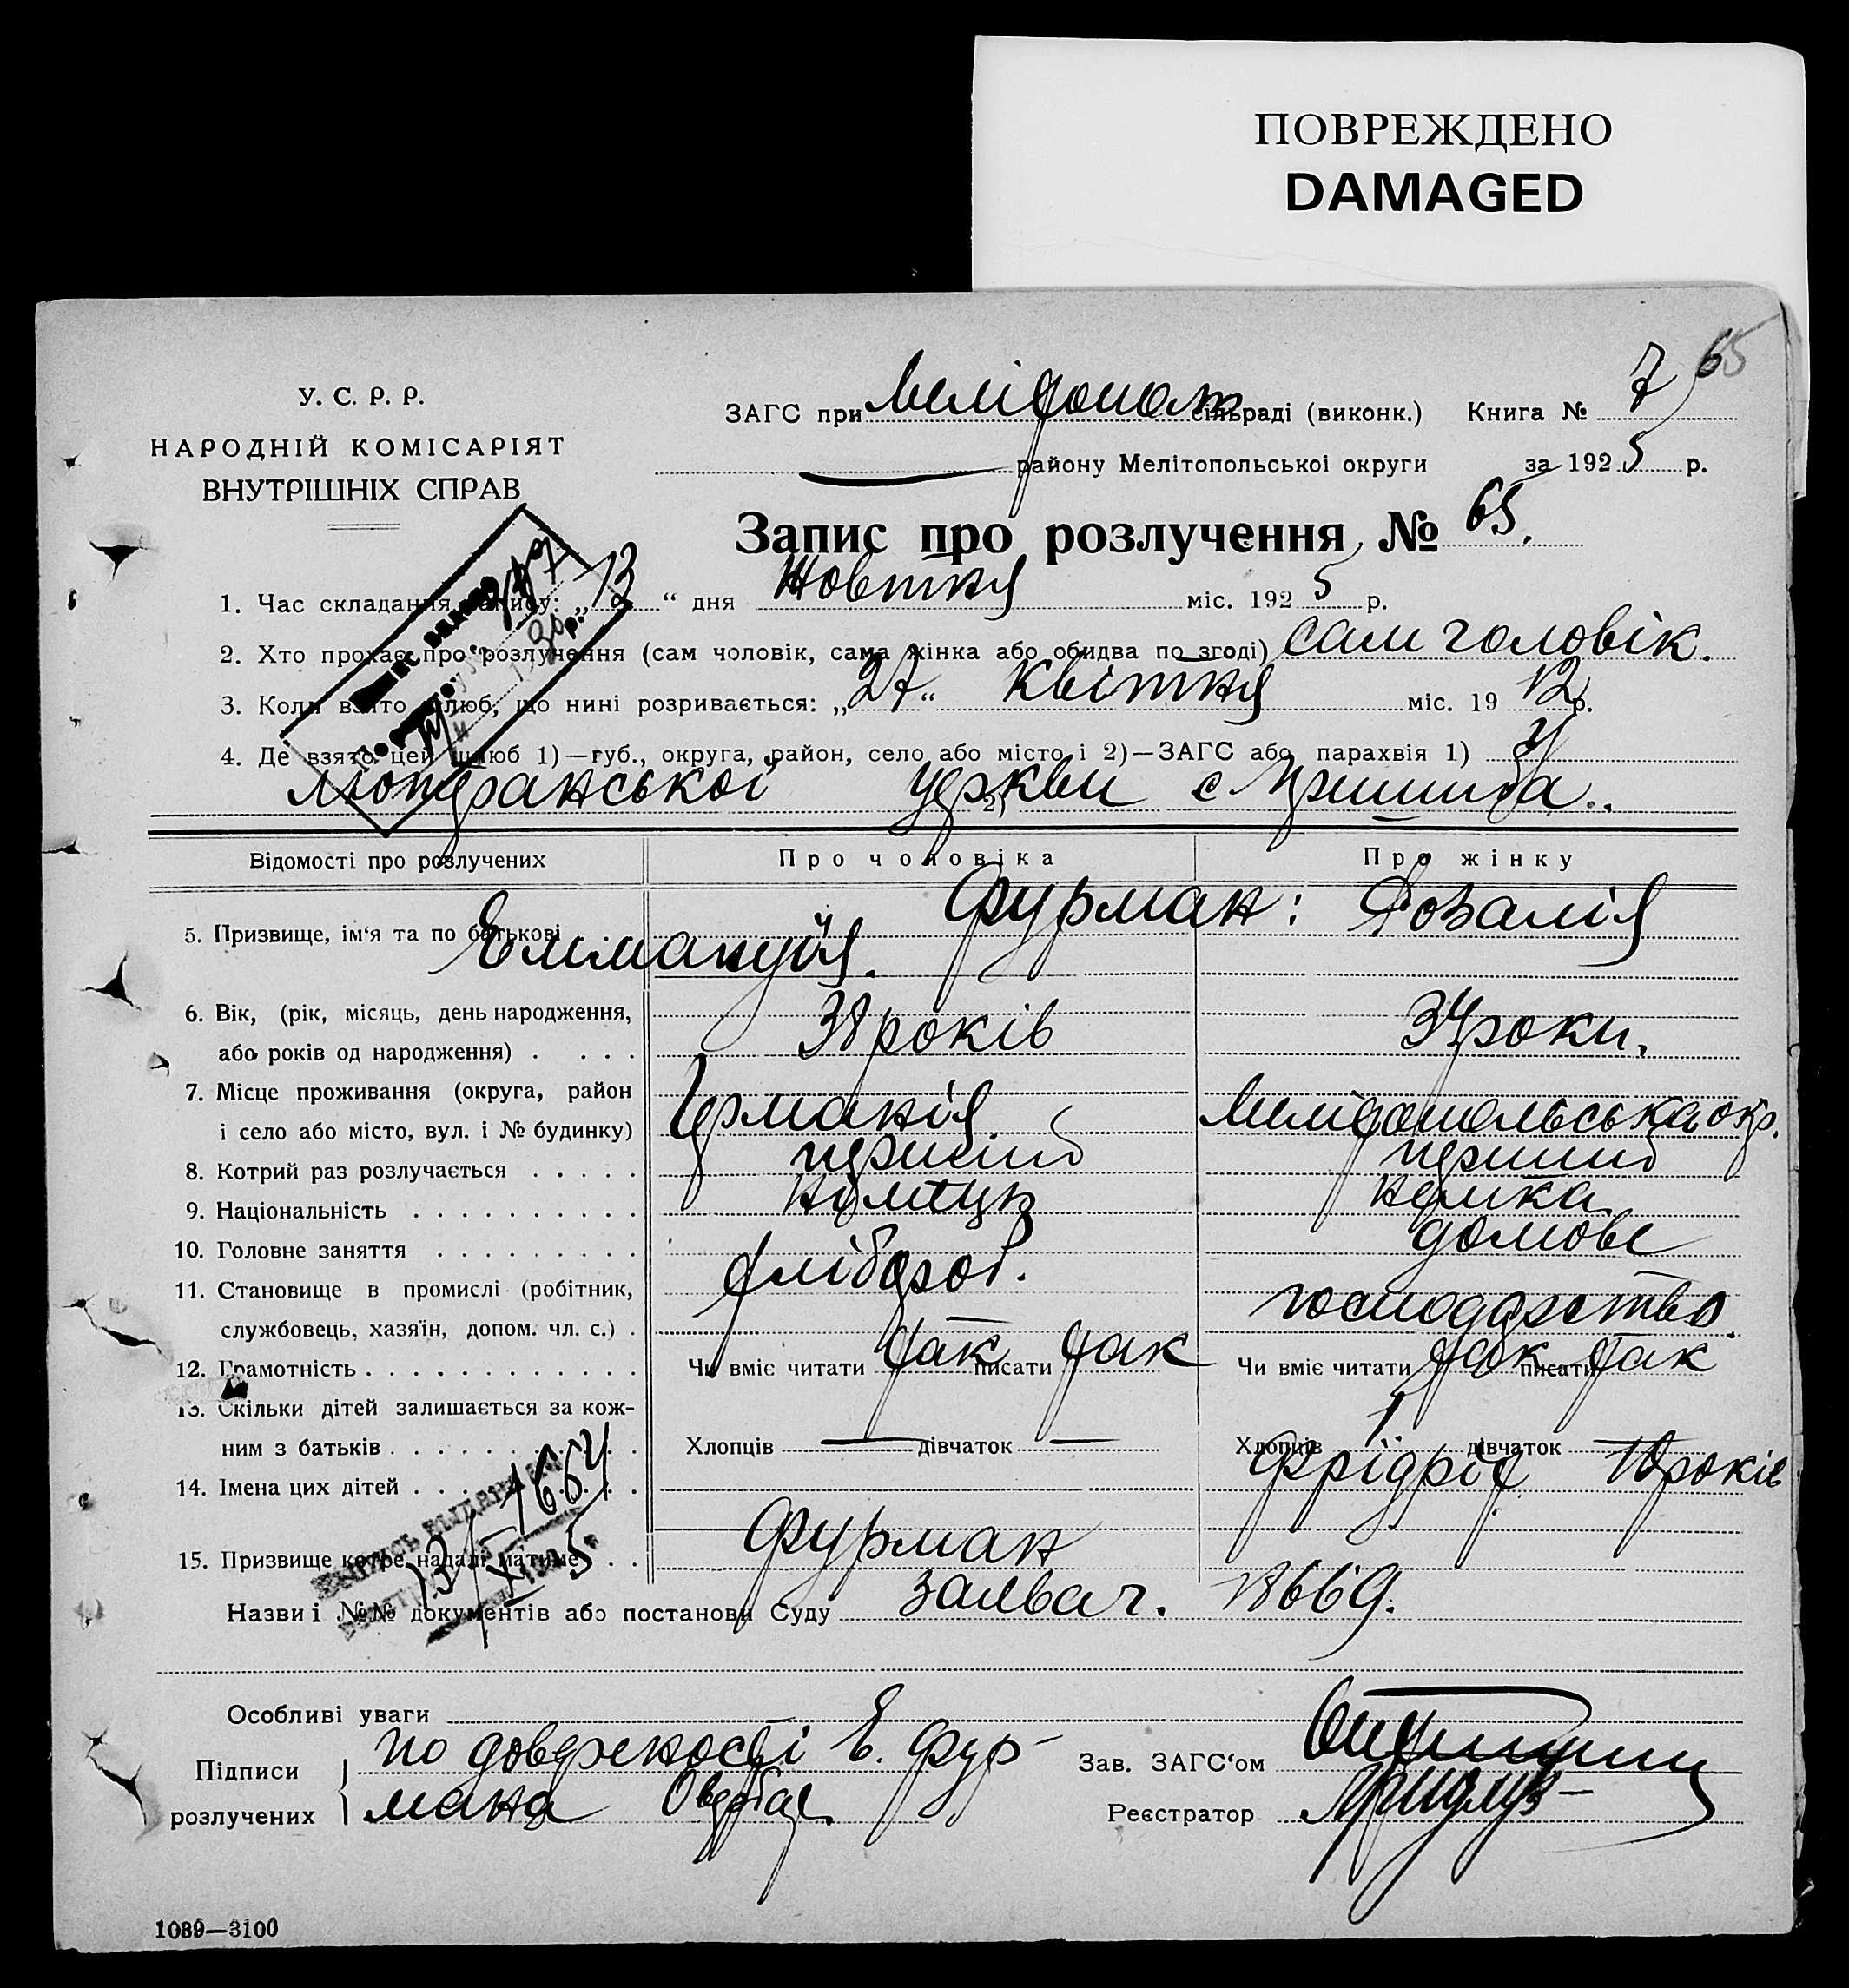 ПОВРЕЖДЕНО
DAMAGED
65
У. С. Р. Р.
НАРОДНІЙ КОМІСАРІЯТ
ВНУТРІШНІХ СПРАВ
ЗАГС при Мелітопол сільраді (виконк.) Книга № 7
району Мелітопольської округи за 1925 р.
Запис про розлучення № 65.
1. Час складання запису: „13“ дня Жовтня міс. 1925 р.
2. Хто прохає про розлучення (сам чоловік, сама жінка або обидва по згоді) сам чоловік.
3. Коли взято шлюб, що нині розривається: „27“ Квітня міс. 1912 р.
4. Де взято цей шлюб 1)—губ., округа, район, село або місто і 2)—ЗАГС або парахвія 1) У
лютеранської церкви 2) с Пришиба.
Відомості про розлучених Про чоловіка Про жінку
5. Призвище, ім‘я та по батькові Фурман: Розалія
Еммануїл.
6. Вік, (рік, місяць, день народження,
або років од народження) 38 років 34 роки.
7. Місце проживання (округа, район
і село або місто, вул. і № будинку) Германія Мелітопольська окр.
8. Котрий раз розлучається перший перший
9. Національність німець немка
10. Головне заняття хлібороб. домове
11. Становище в промислі (робітник,
службовець, хазяїн, допом. чл. с.) господарство.
12. Грамотність Чи вміє читати так писати так Чи вміє читати так писати так
13. Скільки дітей залишається за кож-
ним з батьків Хлопців — дівчаток — Хлопців 1 дівчаток
14. Імена цих дітей Фрідріх років
15. Призвище котре надалі матиме Фурман
Назви і №№ документів або постанови Суду
Особливі уваги
Підписи розлучених по доверености Е. Фур-
мана
Зав. ЗАГС‘ом
Реєстратор
1664
1089—3100